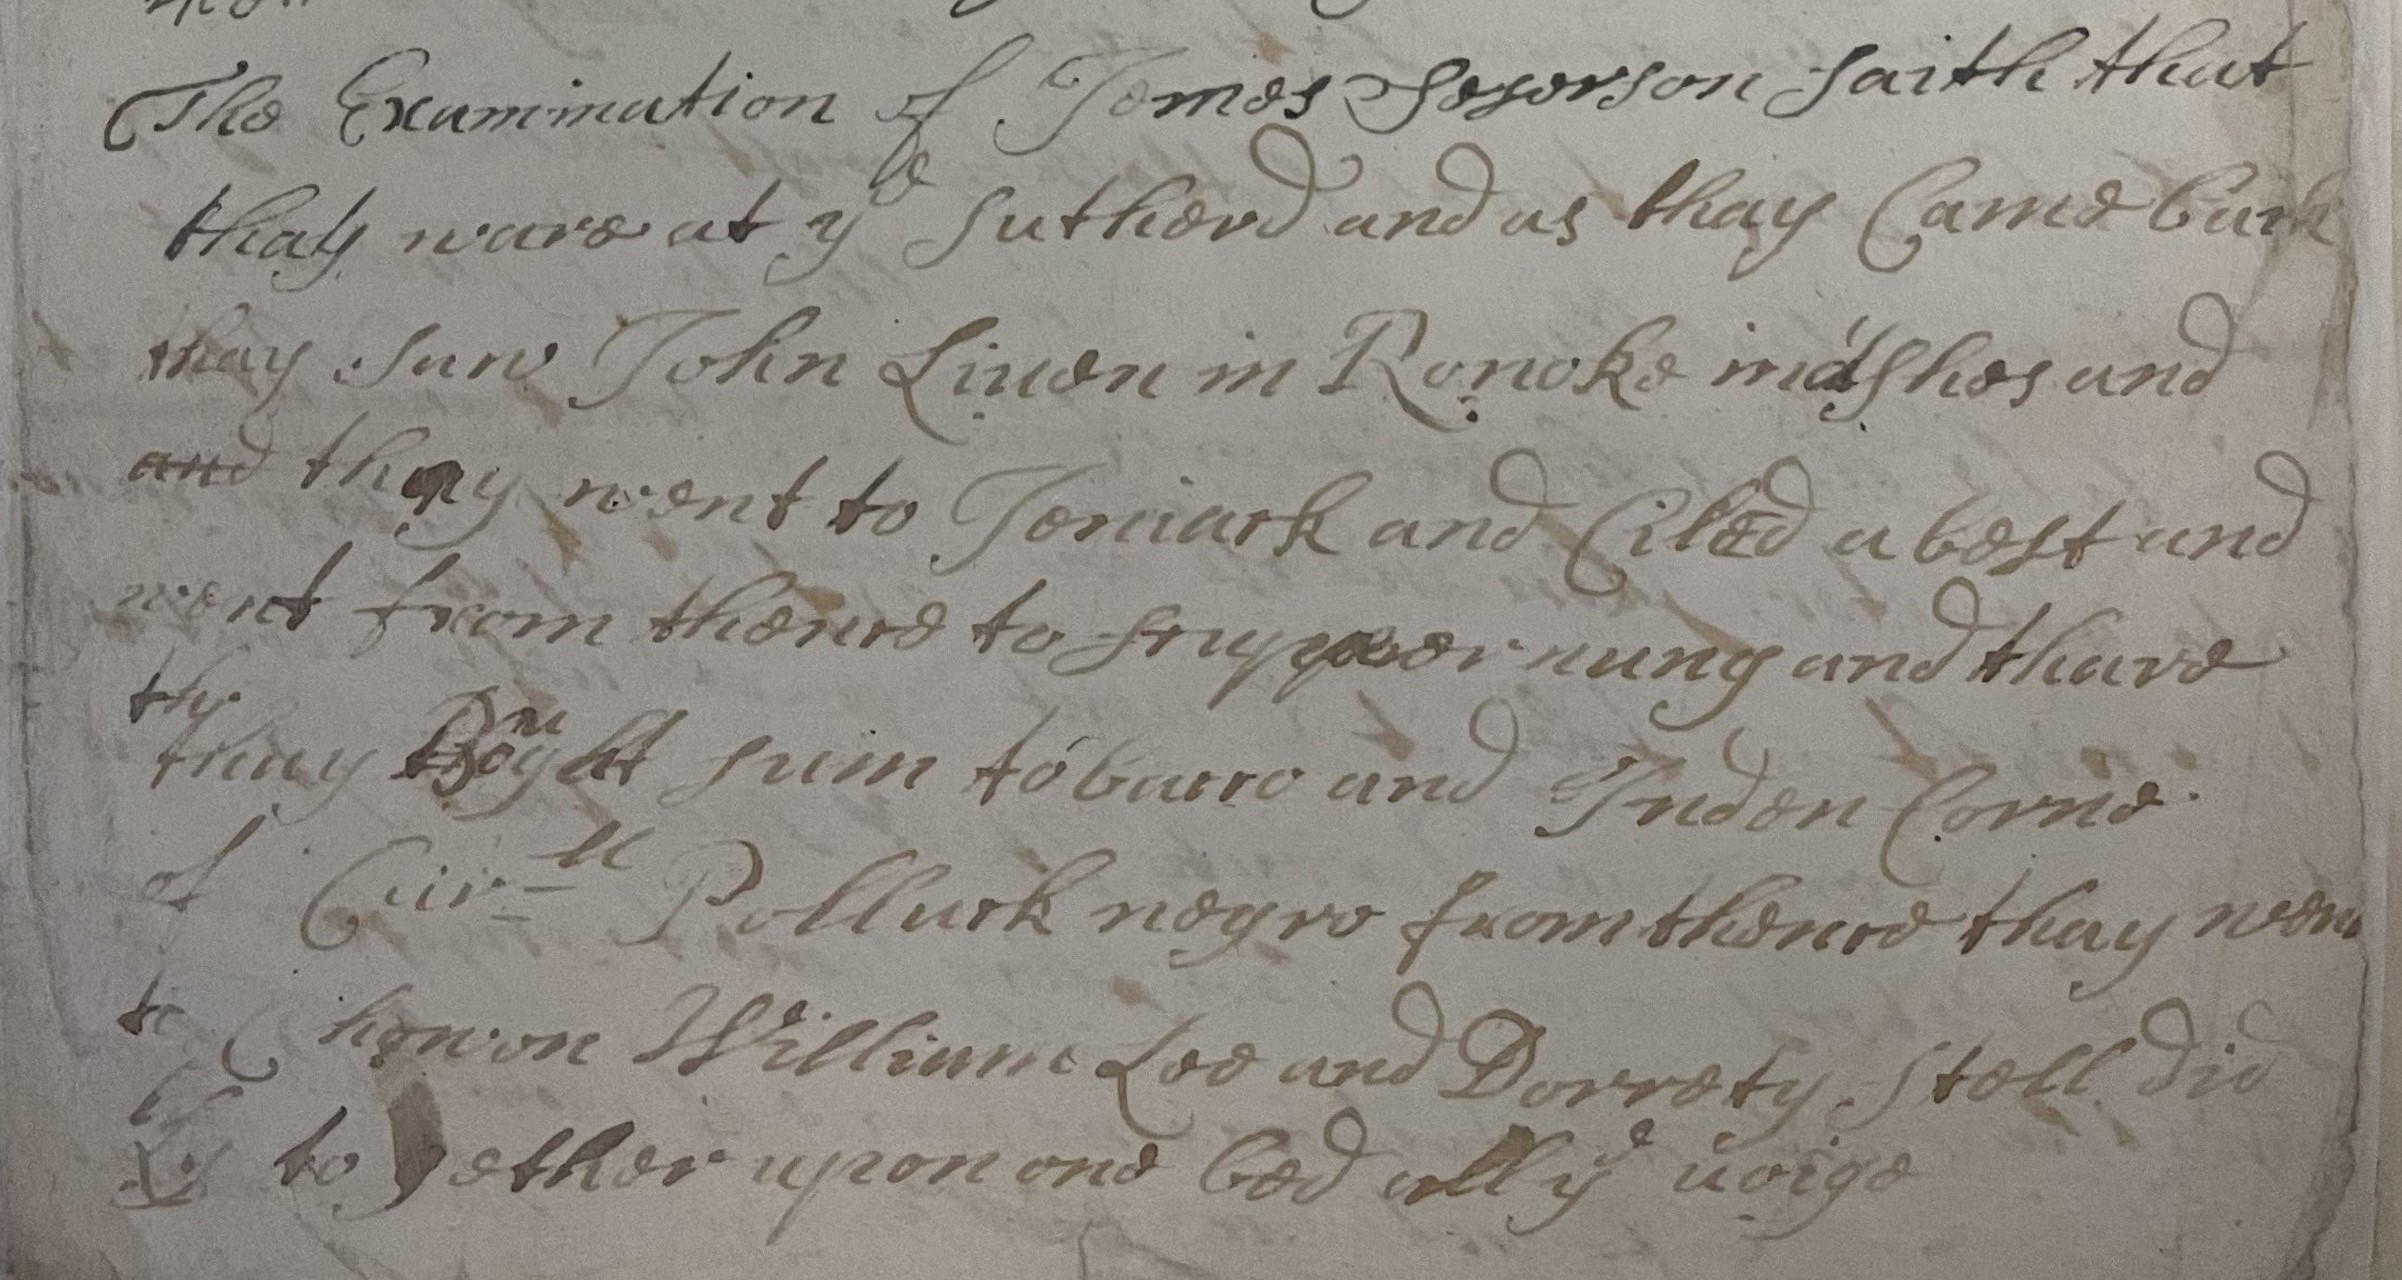 The Examination of Jemes Seserson saith that
thay ware at ye sutherd and as thay Came back
thay saw John Linen in Ronoke mashes and
and thay went to Jemiack and Ciled a best and
went from thence to scuppernung and thare
thay Bought sum tobacco and Inden Corne
of Curll Polluck negro from thence thay wen
to Chowon William Lee and Dorrety stell did
ly to gether upon one bed all ye uoige